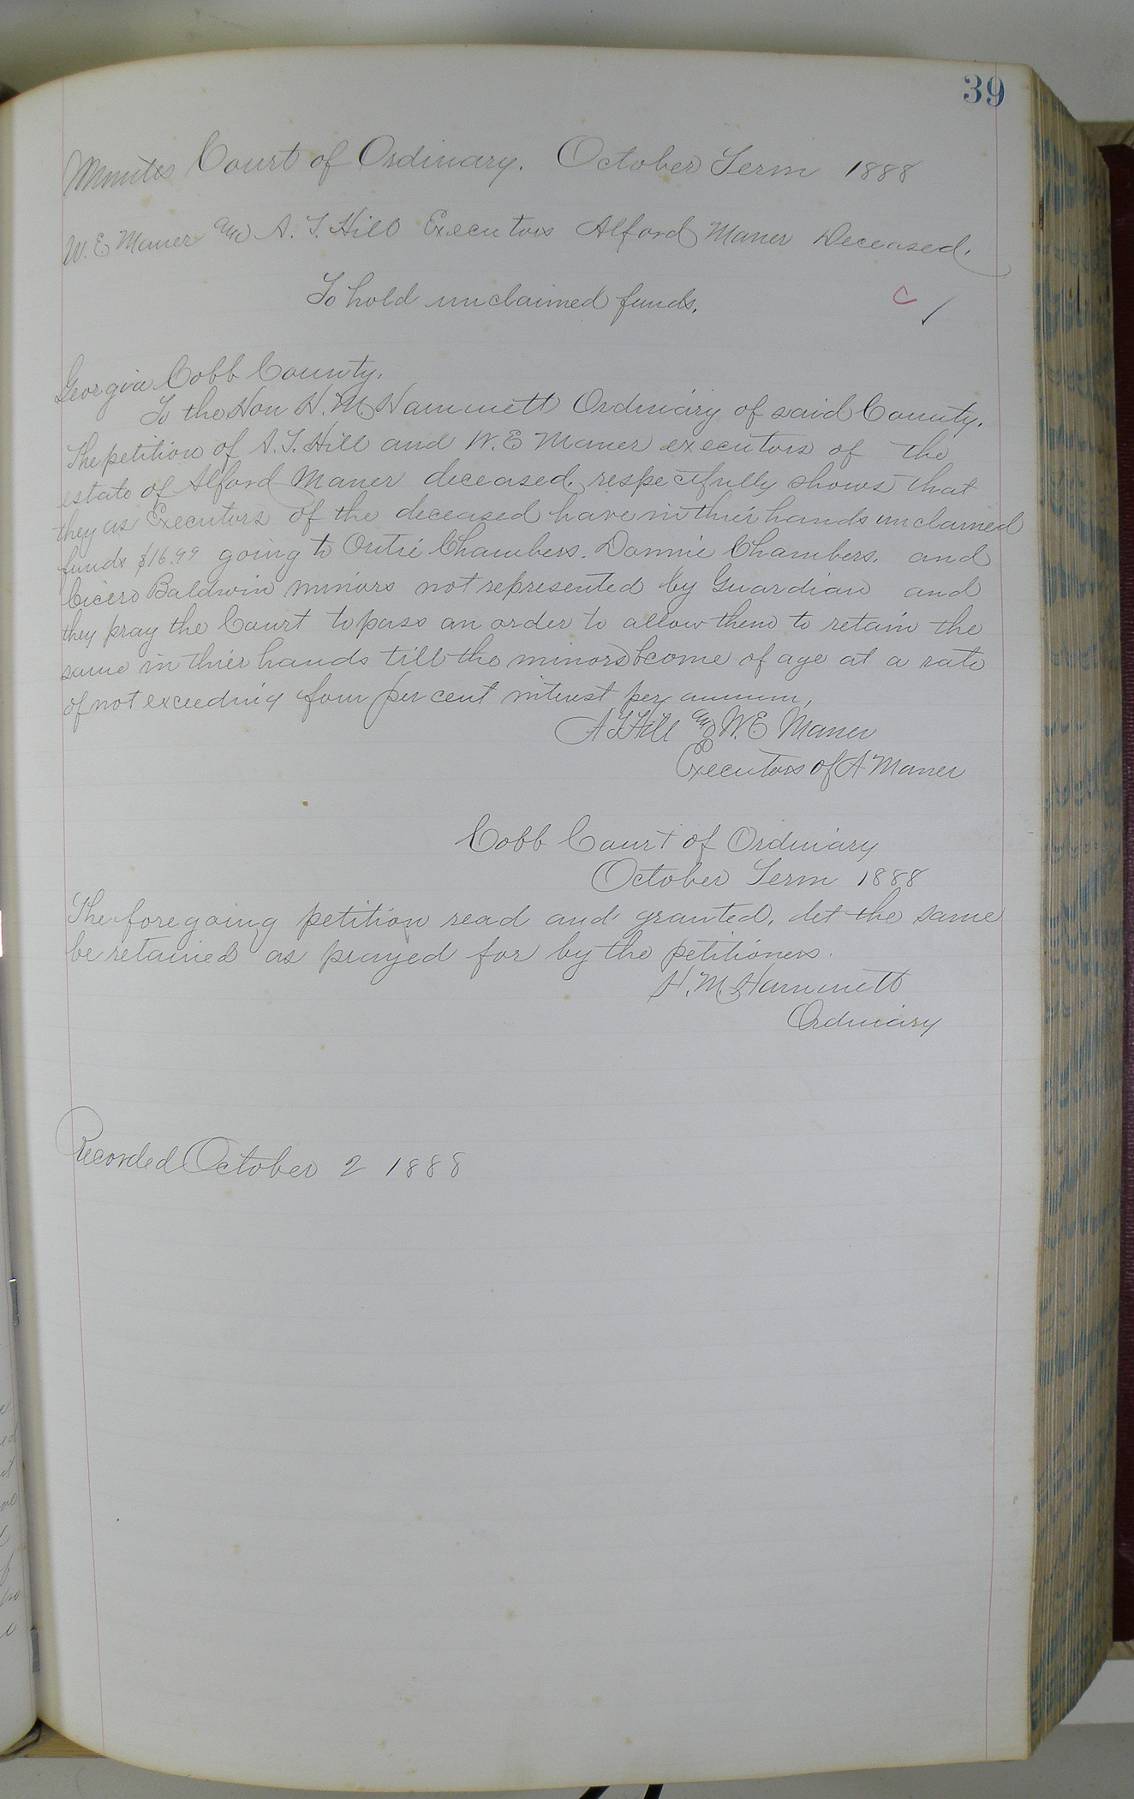 39
Minutes Court of Ordinary. October Term 1888
W. E Maner and A. T. Hill Executors Alford Maner Deceased.
To hold unclaimed funds.
C /
Georgia Cobb County.
To the Hon H. M Hammett Ordinary of said County.
The petition of A. T. Hill and W. E Maner executors of the
estate of Alford Maner deceased, respectfully shows that
they as Executors of the deceased have in thier hands unclamed
funds $16.99 going to Ortie Chambers. Donnie Chambers. and
Cicero Baldwin minors not represented by Guardian and
they pray the Court to pass an order to allow them to retain the
same in thier hands till the minors become of age at a rate
of not exceeding four per cent interest per annum,
A T Hill and W. E Maner
Executors of A Maner
Cobb Court of Ordinary
October Term 1888
The foregoing petition read and granted, let the same
be retained as prayed for by the petitioners.
H. M. Hammett
Ordinary
Recorded October 2 1888